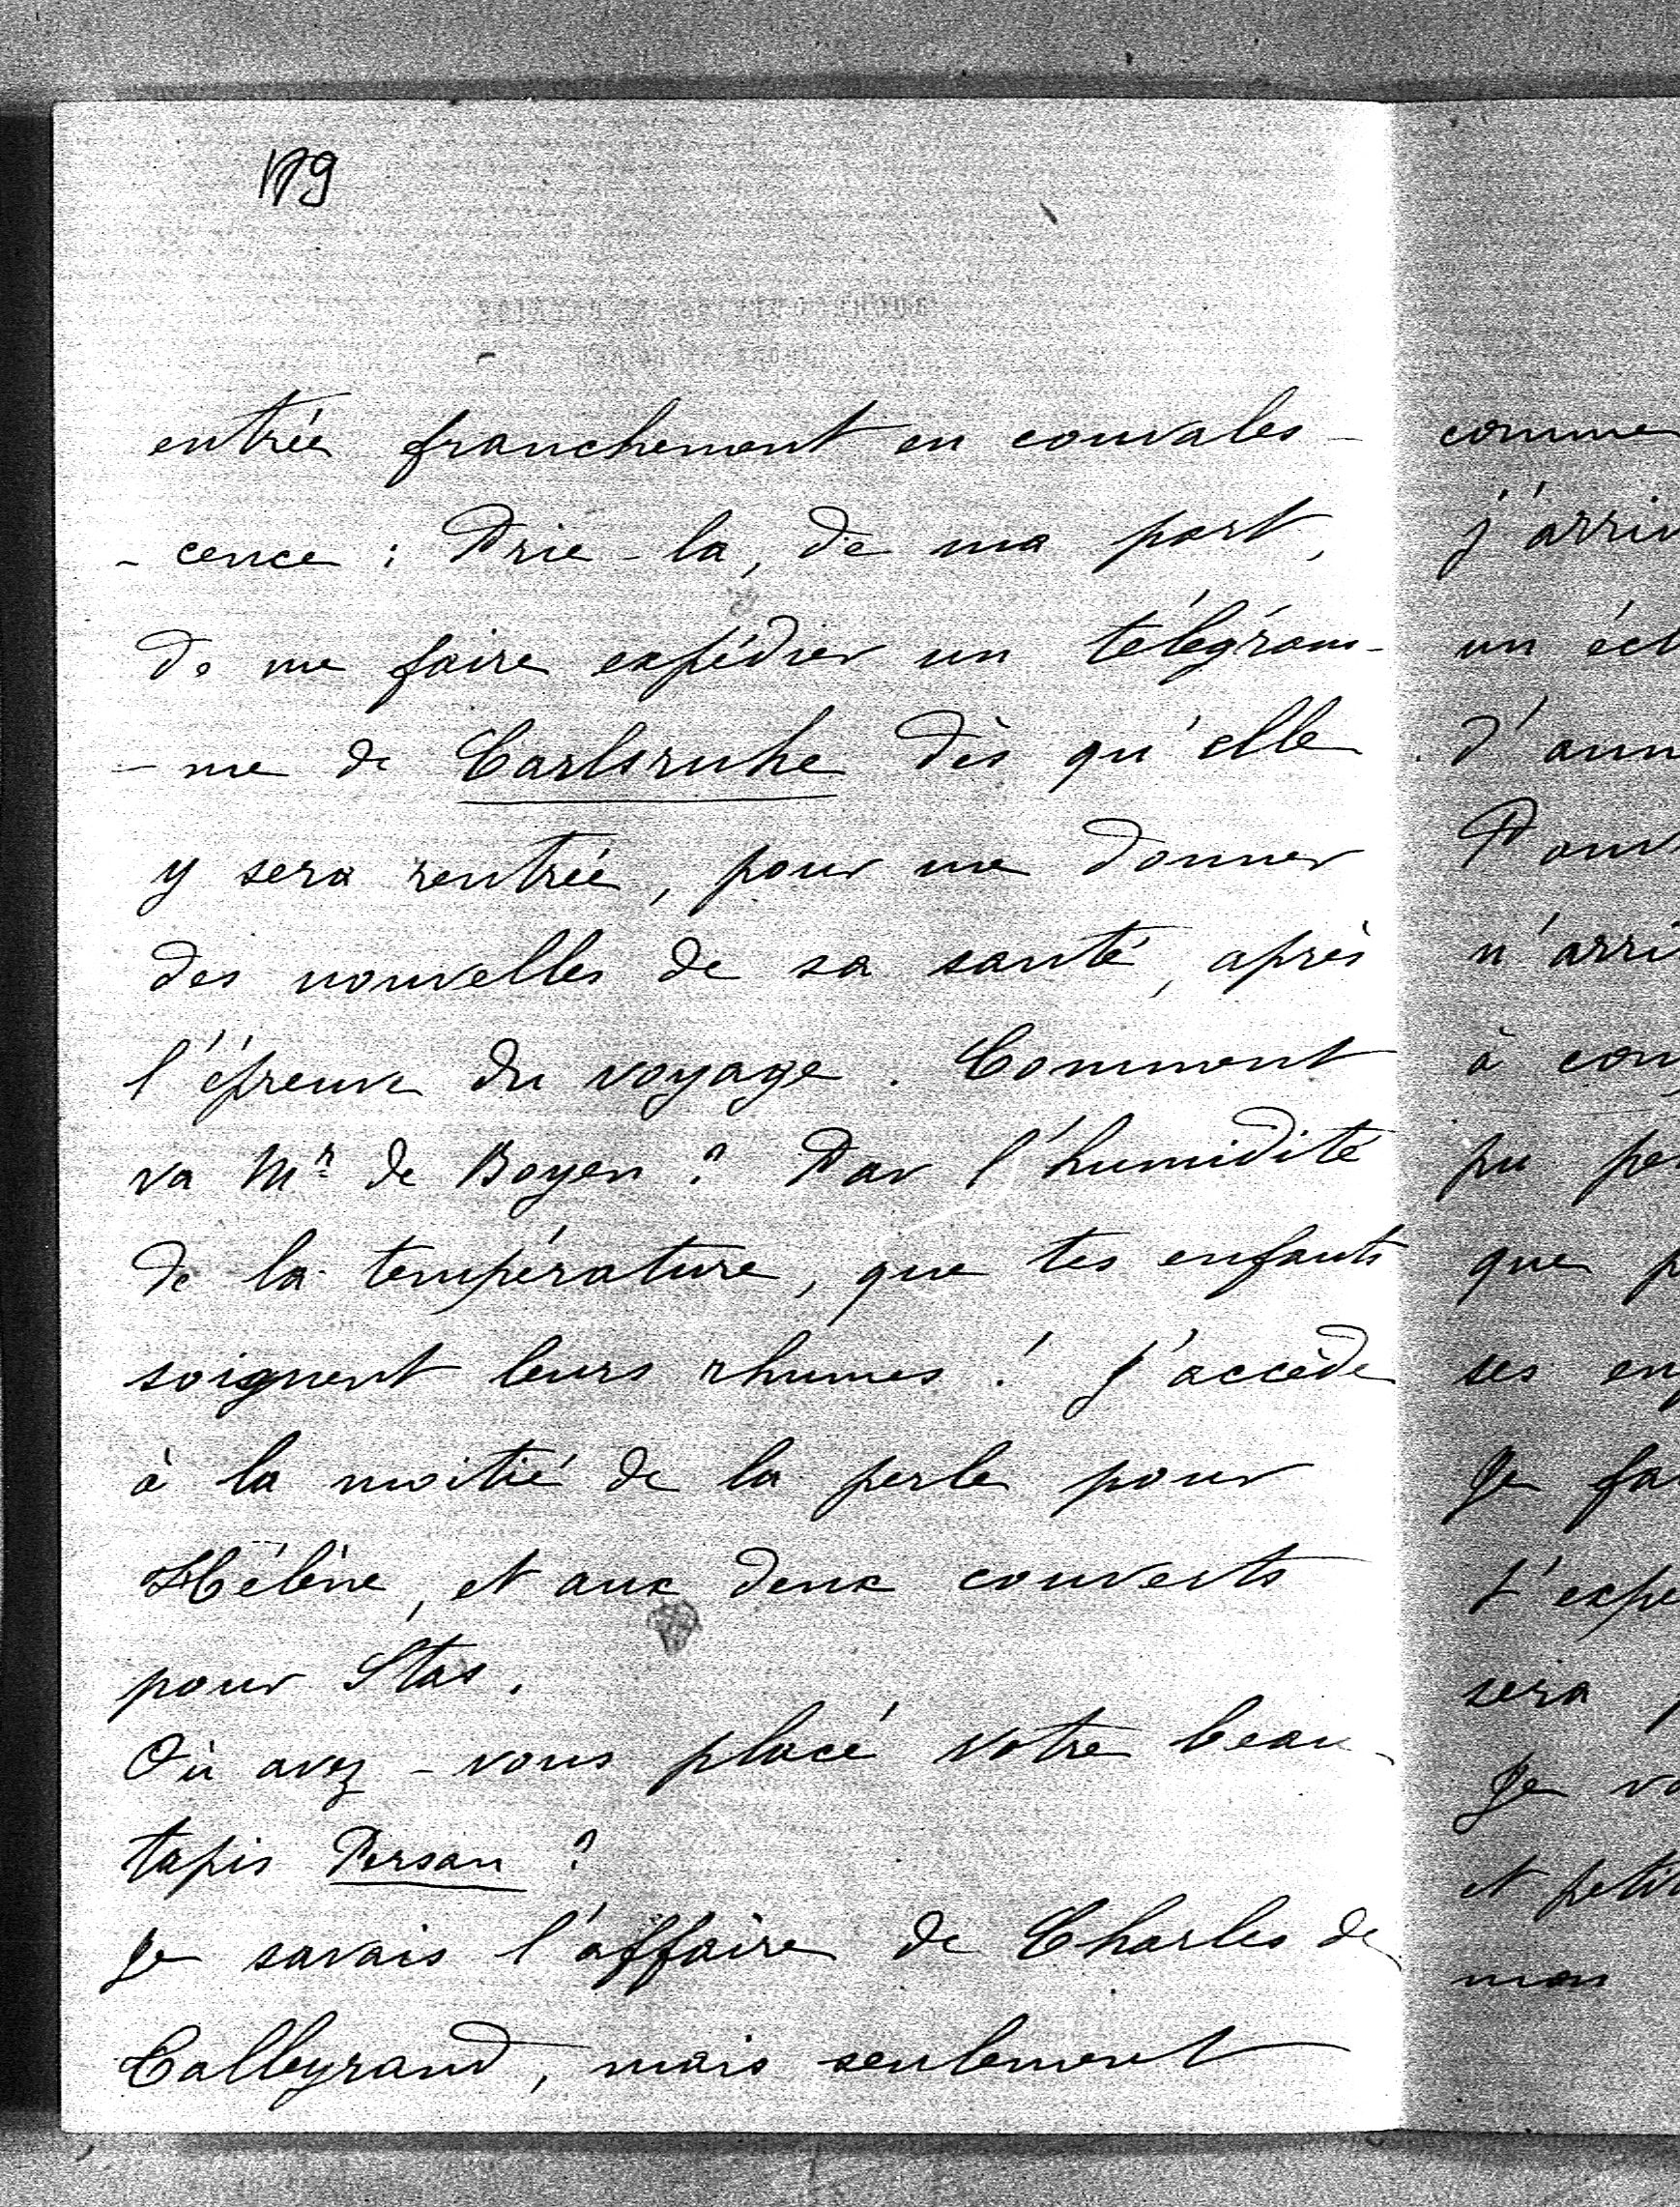 179
entrée franchement en convales-
-cence ; Prie-la, de ma part,
de me faire expédier un télégram-
-me de Carlsruhe dès qu'elle
y sera rentrée, pour me donner
des nouvelles de sa santé, après
l'épreuve du voyage. Comment
va Mr de Boyen ? Par l'humidité
de la température, que tes enfants
soignent leurs rhumes ! J'accède
à la moitié de la perle pour
Hélène, et aux deux couverts
pour Stas.
Où avez-vous placé votre beau
tapis Persan ?
Je savais l'affaire de Charles de
Talleyrand, mais seulement
comme
j'arri
un
d'ann
Pour
n'arri
à
pu
que
ses
Je
sera
Je
et
mon